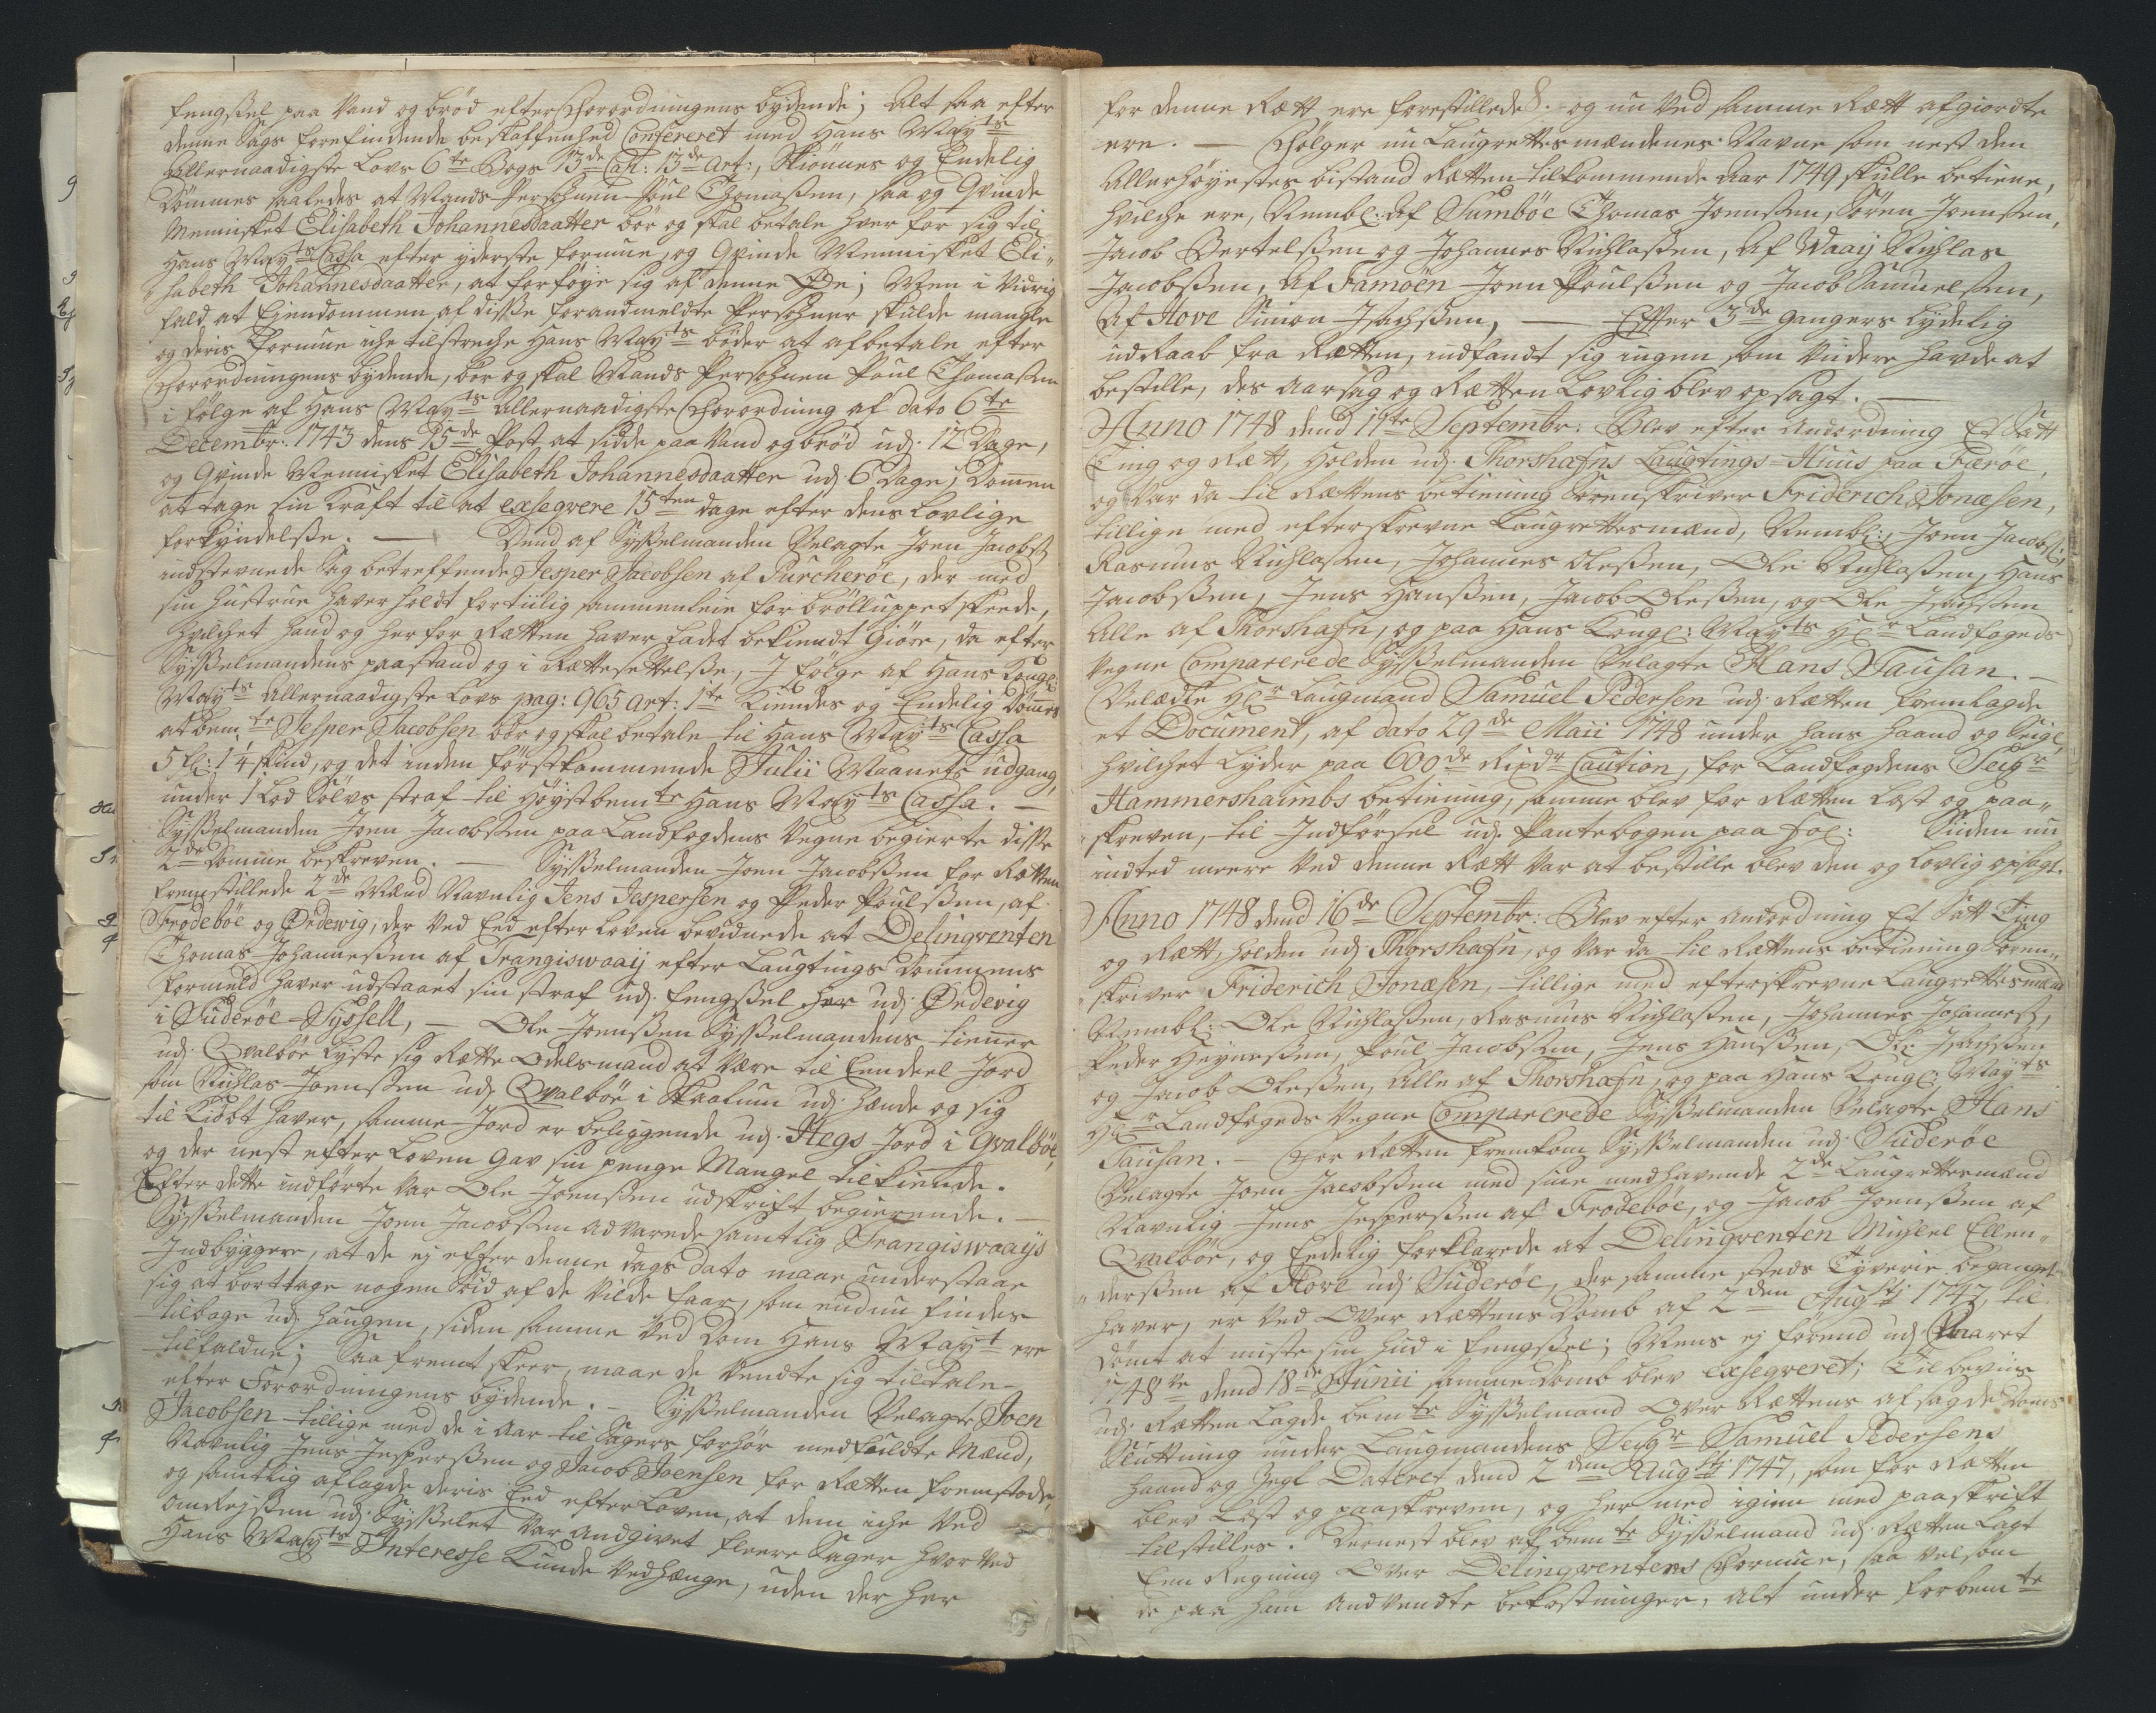 fengsel paa Vand og brød efter Forordningens bydende; Alt saa efter
denne Sags forefindende beskaffenhed Confereret med Hans May:ts
Allernaadigste Lovs 6te Bogs 13de Cap: 13de art:, Skiønnes og Endelig
Dømmes saaledes at Mands Persohnen Poul Thomassen, saa og Qvinde
Mennisket Elisabeth Johannesdaatter bør og skal betale hver for sig til
Hans May:ts Cassa efter yderste formue, og Qvinde Mennisket Eli-
sabeth Johannesdaatter, at forføye sig af denne Øe; Men i Vidrig
fald at Ejendommen af disse forandmeldte Persohner skulde mangle
og deris Formue iche tilstreche Hans May:ts bøder at afbetale efter
Forordningens bydende, bør og skal Mands Persohnen Poul Thomassen
i følge af Hans May:ts Allernaadigste Forordning af dato 6te
Decembr: 1743 dens 15de Post, at sidde paa Vand og brød udj 12 Dage,
og Qvinde Mennisket Elisabeth Johannesdaatter udj 6 Dage; Dommen
at tage sin Kraft til at exseqvere 15ten dage efter dens Lovlige
forkyndelse. — Dend af Sysselmanden Velagte Joen Jacobs:
indstevnede Sag betreffende Jesper Jacobsen af Purcherøe, der med
sin hustrue haver holdt fortiilig sammenleie for brølluppet skeede,
hvilchet hand og her for Retten haver ladet bekiendt giøre, da efter
Sysselmandens paastand og i Rettesettelse, I følge af Hans Kongl:
May:ts Allernaadigste Lovs pag: 965 art: 1te Kiendes og Endelig Dømes
at bem:te Jesper Jacobsen bør og skal betale til Hans May:ts Cassa
5 fl: 14 skind, og det inden førstkommende Julii Maanets udgang,
under 1 Lod Sølvs straf til Høystbem:te Hans May:ts Cassa. —
Sysselmanden Joen Jacobsen paa Landfogdens Vegne begierte disse
2de Domme beskreven. — Sysselmanden Joen Jacobsen for Retten
fremstillede 2de Mænd Navnlig Jens Jespersen og Peder Poulsen, af
Frodebøe og Ørdewig, der Ved Eed efter Loven bevidnede at Delinqventen
Thomas Johannessen af Trangiswaaij efter Laugtings Dommens
Formeld haver udstaaet sin straf udj fengsel her udj Ørdevig
i Suderøe-Syssell, — Ole Joensen Sysselmandens tienner
udj Qvalbøe lyste sig Rette Odelsmand at være til Eendeel Jord
som Nichlas Joensen udj Qvalbøe i Skaalum udj hænde og sig
til Kiøbt haver, samme Jord er beliggende udj Hegs Jord i Qvalbøe,
og der nest efter Loven gav sin penge Mangel tilkiende.
Efter dette indførte var Ole Joensen udskrift begierende. —
Sysselmanden Joen Jacobsen advarede samtlig Trangiswaays
Indbyggere, at de ej efter denne dags dato maae understaae
sig at borttage nogen Tid af de Vilde faar, som endnu findes
tilbage udj haugen, siden samme Ved Dom Hans May:t ere
tilfaldne; Saa fremt skeer, maae de vendte sig tiltale
efter Forordningens bydende. — Sysselmanden Velagte Joen
Jacobsen tillige med de i Aar til Sagers forhør medfuldte Mænd,
Navnlig Jens Jespersen og Jacob Joensen for Retten fremstode,
og samtlig aflagde deris Eed efter Loven, at dem iche ved
omRejsen udj Sysselet var andgivet fleere Sager hvor ved
Hans May:ts Interesse Kunde vedhænge, uden der her
for denne Rett ere forestillede. og nu Ved samme Rett afgiordte
ere. — Følger nu Laugrettesmændenes Navne som nest den
Allerhøyestes bistand Retten tilkommende Aar 1749 skulle betiene,
hvilche ere, Nembl: af Sumbøe Thomas Joensen, Søren Joensen,
Jacob Bertelsen og Johannes Nichlasen, Af Waaij Nichlas
Jacobsen, Af Famøen Joen Poulsen og Jacob Samuelsen,
Af Hove Simon Isachsen, — Efter 3de ganges lydelig
udRaab fra Retten, indfandt sig ingen som Viidere havde at
bestille, des aarsag og Retten Lovlig blev opsagt. —
Anno 1748 dend 14te Septembr: Blev efter Anordning Et Sat
Ting og Rett, Holden udj Thorshafns Laugtings-Huus paa Færøe,
og Var da til Rettens betiening Sorenskriver Friderich Jonæsen,
tillige med efterskrevne Laugrettesmænd, Nembl: Joen Jacobs:,
Rasmus Nichlasen, Johannes Olesen, Ole Nichlasen, Hans
Jacobsen, Jens Hansen, Jacob Olesen, og Ole Isachsen
Alle af Thorshafn, og paa Hans Kongl: May:ts Hr Landfogeds
Vegne Comparerede Sysselmanden Velagte Hans Tausan. —
Velædle Hr Laugmand Samuel Pedersen udj Retten fremlagde
et Document, af dato 29de Maii 1748 under hans Haand og Seigl,
hvilchet lyder paa 600de Rixdr Caution, for Landfogdens Seigr
Hammershaimbs betiening, samme blev for Retten Læst og paa-
skreven, til Indførsel udj Pantebogen paa fol: Siden nu
indted meere ved denne Rett var at bestille blev den og Lovlig opsagt.
Anno 1748 dend 16de Septembr: Blev efter anordning Et Sat Ting
og Rett, holden udj Thorshafn, og var da til Rettens betiening Soren-
skriver Friderich Jonæsen, tillige med efterskrevne Laugrettesmænd
Nembl: Ole Nichlasen, Rasmus Nichlasen, Johannes Johannes:,
Peder Heynesen, Poul Jacobsen, Jens Hansen, Ole Isachsen
og Jacob Olesen, Alle af Thorshafn, og paa Hans Kongl: May:ts
Hr Landfogeds Vegne Comparerede Sysselmanden Velagte Hans
Tausan. — For Retten fremkom Sysselmanden udj Suderøe
Velagte Joen Jacobsen med sine medhavende 2de Laugrettesmænd
Navnlig Jens Jespersen af Frodebøe, og Jacob Joensen af
Qvalbøe, og Eedelig forklarede at Delinqventen Michel Ellen-
dersen af Hove udj Suderøe, der samme steds Tyverie begaaet
haver, er ved Over Rettens Domb af 2den Augstj 1747, til
dømt at miste sin hud i fengsel; Mens ej førend udj Aaret
1748de dend 18de Junii samme Domb blev exseqveret; Til beviis
udj Retten Lagde bem:te Sysselmand Over Rettens afsagde Doms
Sluttning under Laugmandens Seigr Samuel Pedersens
haand og Zegl Dateret dend 2den Augstj 1747, som for Retten
blev Læst og paaskreven, og her med igien med paaskrift
tilstilles. Dernest blev af bem:te Sysselmand udj Retten Lagt
Een Regning Over Delinqventens Formue, saa vel som
de paa ham andvendte bekostninger, alt under forbem:te